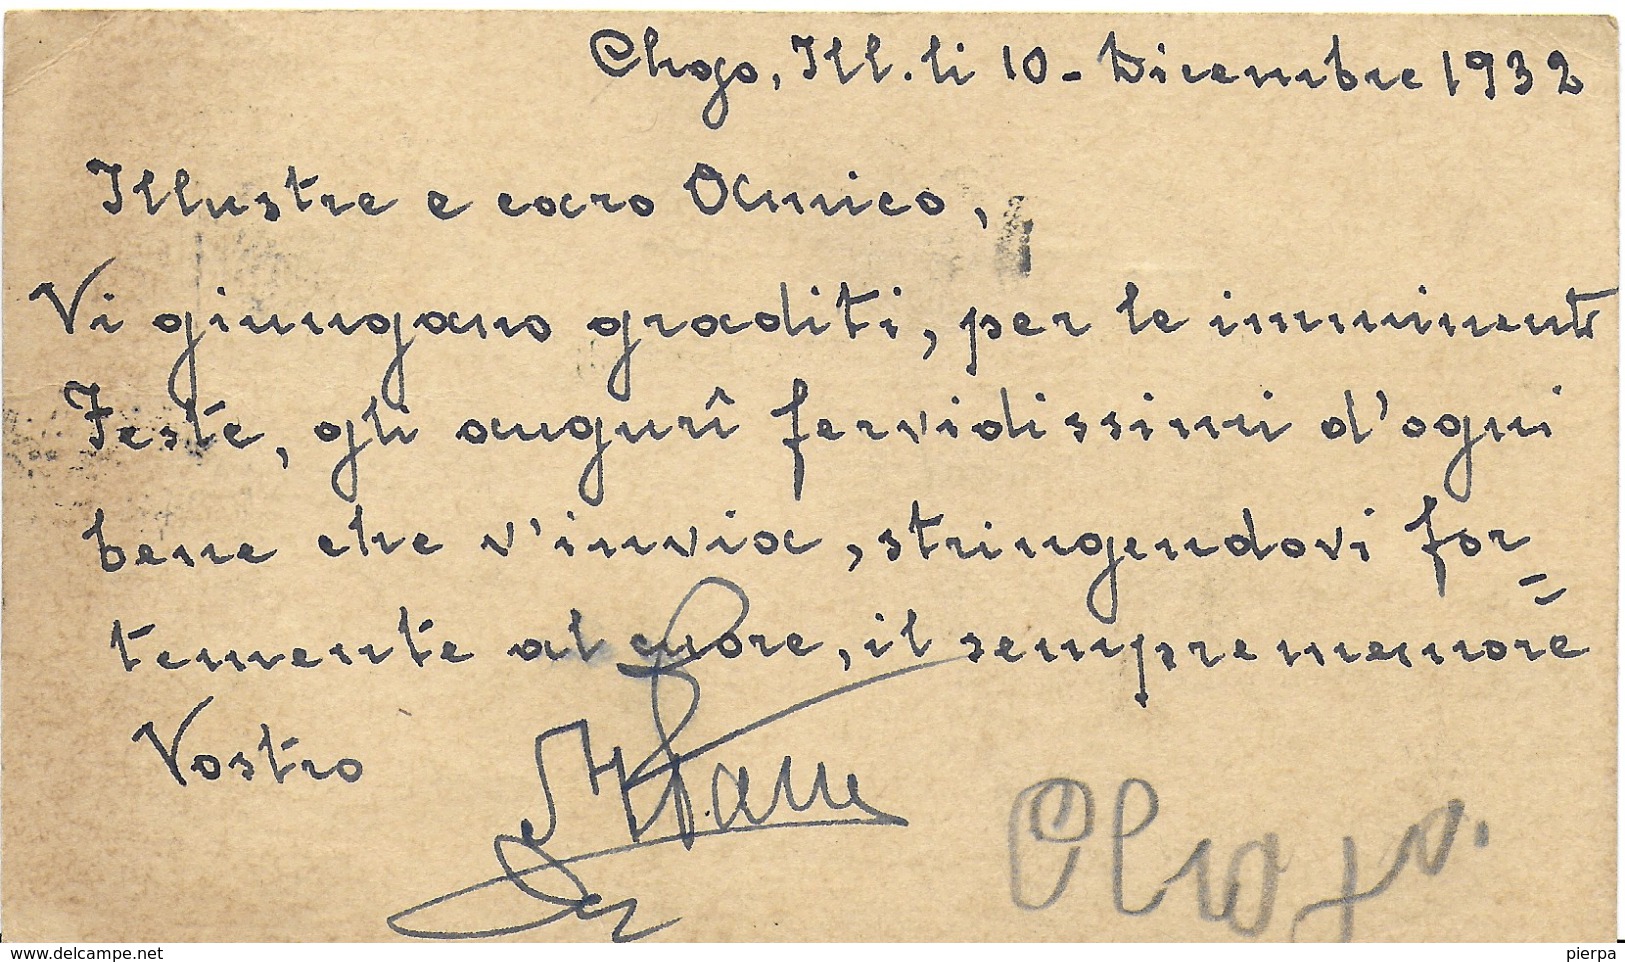 Chogo, Ill. li 10 - Dicembre 1932
Illustre e caro Amico,
Vi giungano graditi, per le imminenti
Feste, gli augurî fervidissimi d'ogni
bene che v'invia, stringendovi for=
temente al cuore, il sempre memore
Vostro
Chogo.
pierpa
© www.delcampe.net